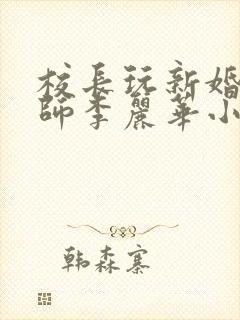 校長玩新婚
師李麗華小
韩森寨